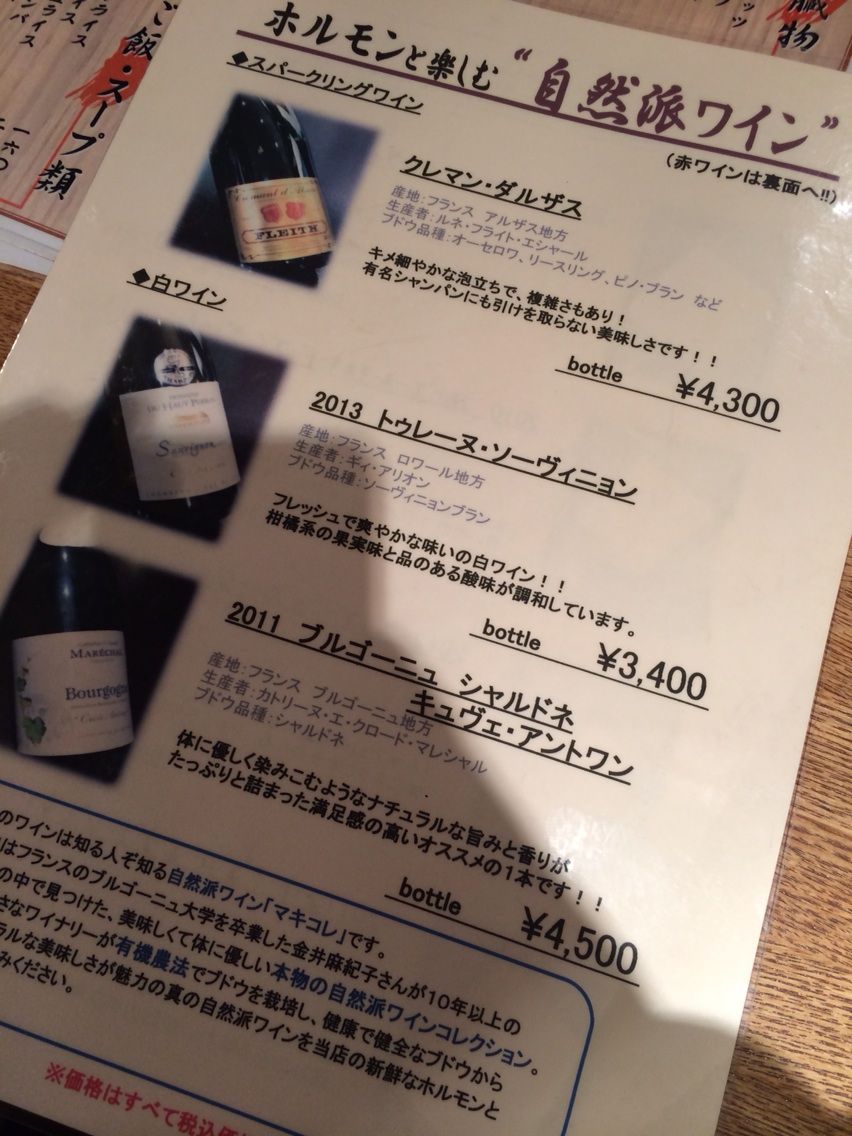 ホルモンと楽しむ "自然派ワイン"
(赤ワインは裏面へ!!)
◆スパークリングワイン
FLEITH
クレマン・ダルザス
産地:フランス アルザス地方
生産者:ルネ・フライト・エシャール
ブドウ品種:オーセロワ、リースリング、ピノ・ブラン など
キメ細やかな泡立ちで、複雑さもあり!
有名シャンパンにも引けを取らない美味しさです!!
bottle ¥4,300
◆白ワイン
Sauvignon
2013 トゥレーヌ・ソーヴィニョン
産地:フランス ロワール地方
生産者:ギィ・アリオン
ブドウ品種:ソーヴィニョンブラン
フレッシュで爽やかな味いの白ワイン!!
柑橘系の果実味と品のある酸味が調和しています。
bottle ¥3,400
MARÉCHAL
Bourgogne
2011 ブルゴーニュ シャルドネ
キュヴェ・アントワン
産地:フランス ブルゴーニュ地方
生産者:カトリーヌ・エ・クロード・マレシャル
ブドウ品種:シャルドネ
体に優しく染みこむようなナチュラルな旨みと香りが
たっぷりと詰まった満足感の高いオススメの1本です!!
bottle ¥4,500
のワインは知る人ぞ知る自然派ワイン「マキコレ」です。
はフランスのブルゴーニュ大学を卒業した金井麻紀子さんが10年以上の
の中で見つけた、美味しくて体に優しい本物の自然派ワインコレクション。
さなワイナリーが有機農法でブドウを栽培し、健康で健全なブドウから
ラルな美味しさが魅力の真の自然派ワインを当店の新鮮なホルモンと
みください。
※価格はすべて税込価
ご飯・スープ類
ライス
臓物